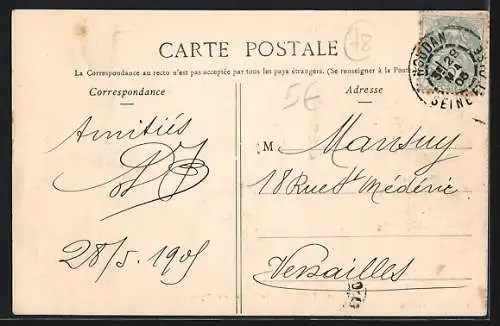 CARTE POSTALE
78
La Correspondance au recto n'est pas acceptée par tous les pays étrangers. (Se renseigner à la Poste
Correspondance
Adresse
5€
HOUDAN
28
MAI
05
SEINE-ET-OISE
Amitiés
M. Mansuy
18 Rue St Médéric
28/5. 1905
Versailles